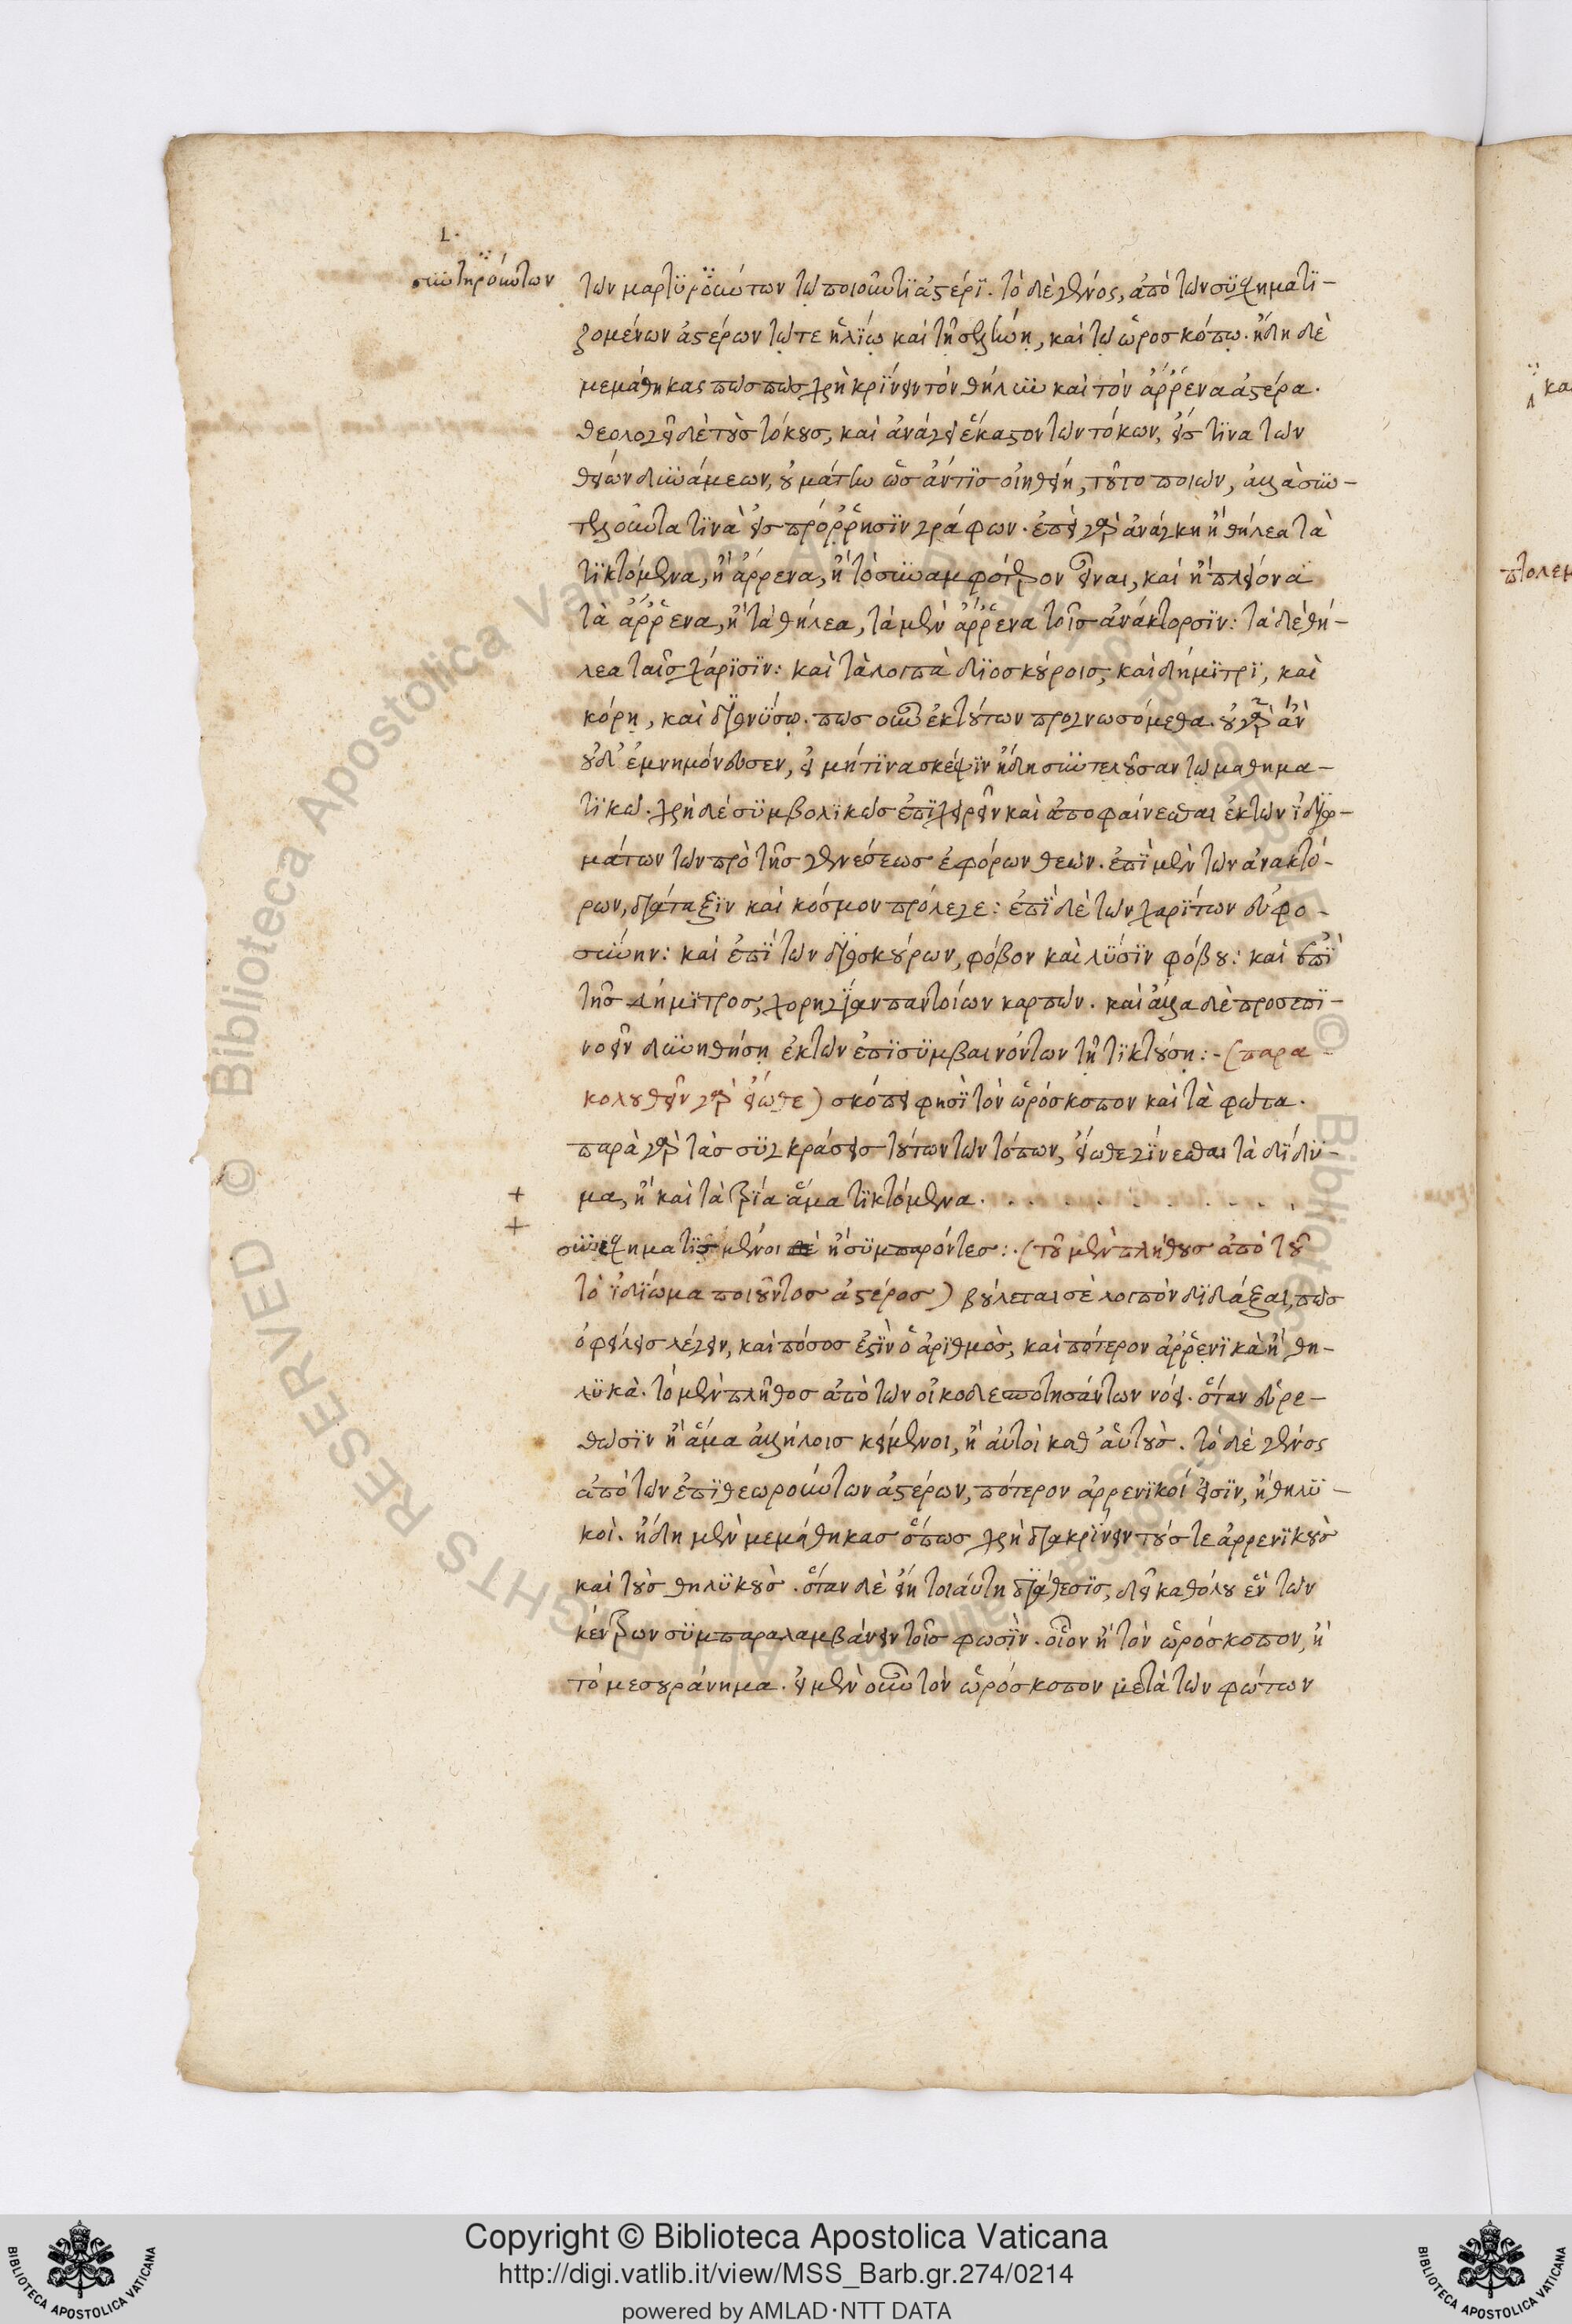 L·
συντηρούντων
τῶν μαρτϋρούντων τῷ ποιοῦντϊ ἀστέρϊ. τὸ δὲ γένος, ἀπὸ τῶν σϋσχηματϊ-
ζομένων ἀστέρων τῷ τε ἡλΐῳ καὶ τῇ σελήνῃ, καὶ τῷ ὡροσκόπῳ. ἤδη δὲ
μεμάθηκας πῶσ πῶσ χρὴ κρΐνειν τὸν θῆλυν καὶ τὸν ἄρρενα ἀστέρα.
θεολογεῖ δὲ τοὺσ τόκουσ, καὶ ἀνάγει ἕκαστον τῶν τόκων, εἴσ τϊνα τῶν
θείων δυνάμεων, οὐ μάτην ὥσ ἄν τϊσ οἰηθείη, τοῦτο ποιῶν, ἀλλὰ συν-
τελοῦντα τϊνὰ εἰσ πρόρρησϊν γράφων. ἐπεὶ γὰρ ἀνάγκη ἢ θήλεα τὰ
τϊκτόμενα, ἢ ἄρρενα, ἢ τὸ συναμφότερον εἶναι, καὶ ἢ πλείονα
τὰ ἄρρενα, ἢ τὰ θήλεα, τὰ μὲν ἄρρενα τοῖσ ἀνάκτορσϊν: τὰ δὲ θή-
λεα ταῖσ χάρϊσϊν: καὶ τὰ λοιπὰ δϊοσκούροισ, καὶ δήμϊτρϊ, καὶ
κόρῃ, καὶ διονΰσῳ. πωσ οὖν ἐκ τούτων προγνωσόμεθα. οὐ γὰρ ἂν
οὐδ' ἐμνημόνευσεν, εἰ μή τϊνα σκέψϊν ἤδη συντελοῦσαν τῷ μαθημα-
τϊκῷ. χρὴ δὲ σϋμβολϊκῶσ ἐπϊχειρεῖν καὶ ἀποφαίνεσθαι ἐκ τῶν ἰδιω-
μάτων τῶν πρὸ τῆσ γενέσεωσ ἐφόρων θεῶν. ἐπϊ μὲν τῶν ἀνακτό-
ρων, διάταξϊν καὶ κόσμον πρόλεγε: ἐπϊ δὲ τῶν χαρΐτων εὐφρο-
σύνην: καὶ ἐπϊ τῶν διοσκούρων, φόβον καὶ λΰσϊν φόβου: καὶ ἐπϊ
τῆσ δήμϊτροσ, χορηγίαν παντοίων καρπῶν. καὶ ἄλλα δὲ προσεπϊ-
νοεῖν δυνηθήσῃ ἐκ τῶν ἐπϊσϋμβαινόντων τῇ τϊκτούσῃ:-(παρα-
κολουθεῖν γὰρ εἴωθε) σκόπει φησϊ τὸν ὡρόσκοπον καὶ τὰ φῶτα.
παρὰ γὰρ τὰσ σϋγκράσεισ τούτων τῶν τόπων, εἴωθε γΐνεσθαι τὰ δΐδϋ-
μα, ἢ καὶ τὰ τρΐα ἅμα τϊκτόμενα. . . . . . . . . .
+
+
σϋσχηματϊζ μένοι ἢ σϋμπαρόντεσ:·(τοῦ μὲν πλήθουσ ἀπὸ τοῦ
τὸ ἰδϊωμα ποιοῦντοσ ἀστέροσ) βούλεται σὲ λοιπὸν δϊδάξαι, πῶσ
ὀφείλεισ λέγειν, καὶ πόσοσ ἐστϊν ὁ ἀρϊθμὸσ, καὶ πότερον ἀρρενϊκὰ ἢ θη-
λϋκὰ. τὸ μὲν πλῆθοσ ἀπὸ τῶν οἰκοδεσποτησάντων νόει. ὅταν εὑρε-
θῶσϊν ἢ ἅμα ἀλλήλοισ κείμενοι, ἢ αὐτοὶ καθ' αὑτοὺσ. τὸ δὲ γένος
ἀπὸ τῶν ἐπϊθεωρούντων ἀστέρων, πότερον ἀρρενϊκοί εἰσϊν, ἢ θηλϋ-
κοὶ. ἤδη μὲν μεμάθηκασ ὅπωσ χρὴ διακρΐνειν τούσ τε ἀρρενϊκοὺσ
καὶ τοὺσ θηλϋκοὺσ. ὅταν δὲ εἴη τοιαύτη διάθεσϊσ, δεῖ καθόλου ἓν τῶν
κέντρων σϋμπαραλαμβάνειν τοῖσ φωσϊν. οἷον ἢ τὸν ὡρόσκοπον, ἢ
τὸ μεσουράνημα. εἰ μὲν οὖν τὸν ὡρόσκοπον μετὰ τῶν φώτων
κα
πτολεμ
Copyright © Biblioteca Apostolica Vaticana
http://digi.vatlib.it/view/MSS_Barb.gr.274/0214
powered by AMLAD·NTT DATA
BIBLIOTECA APOSTOLICA VATICANA
BIBLIOTECA APOSTOLICA VATICANA